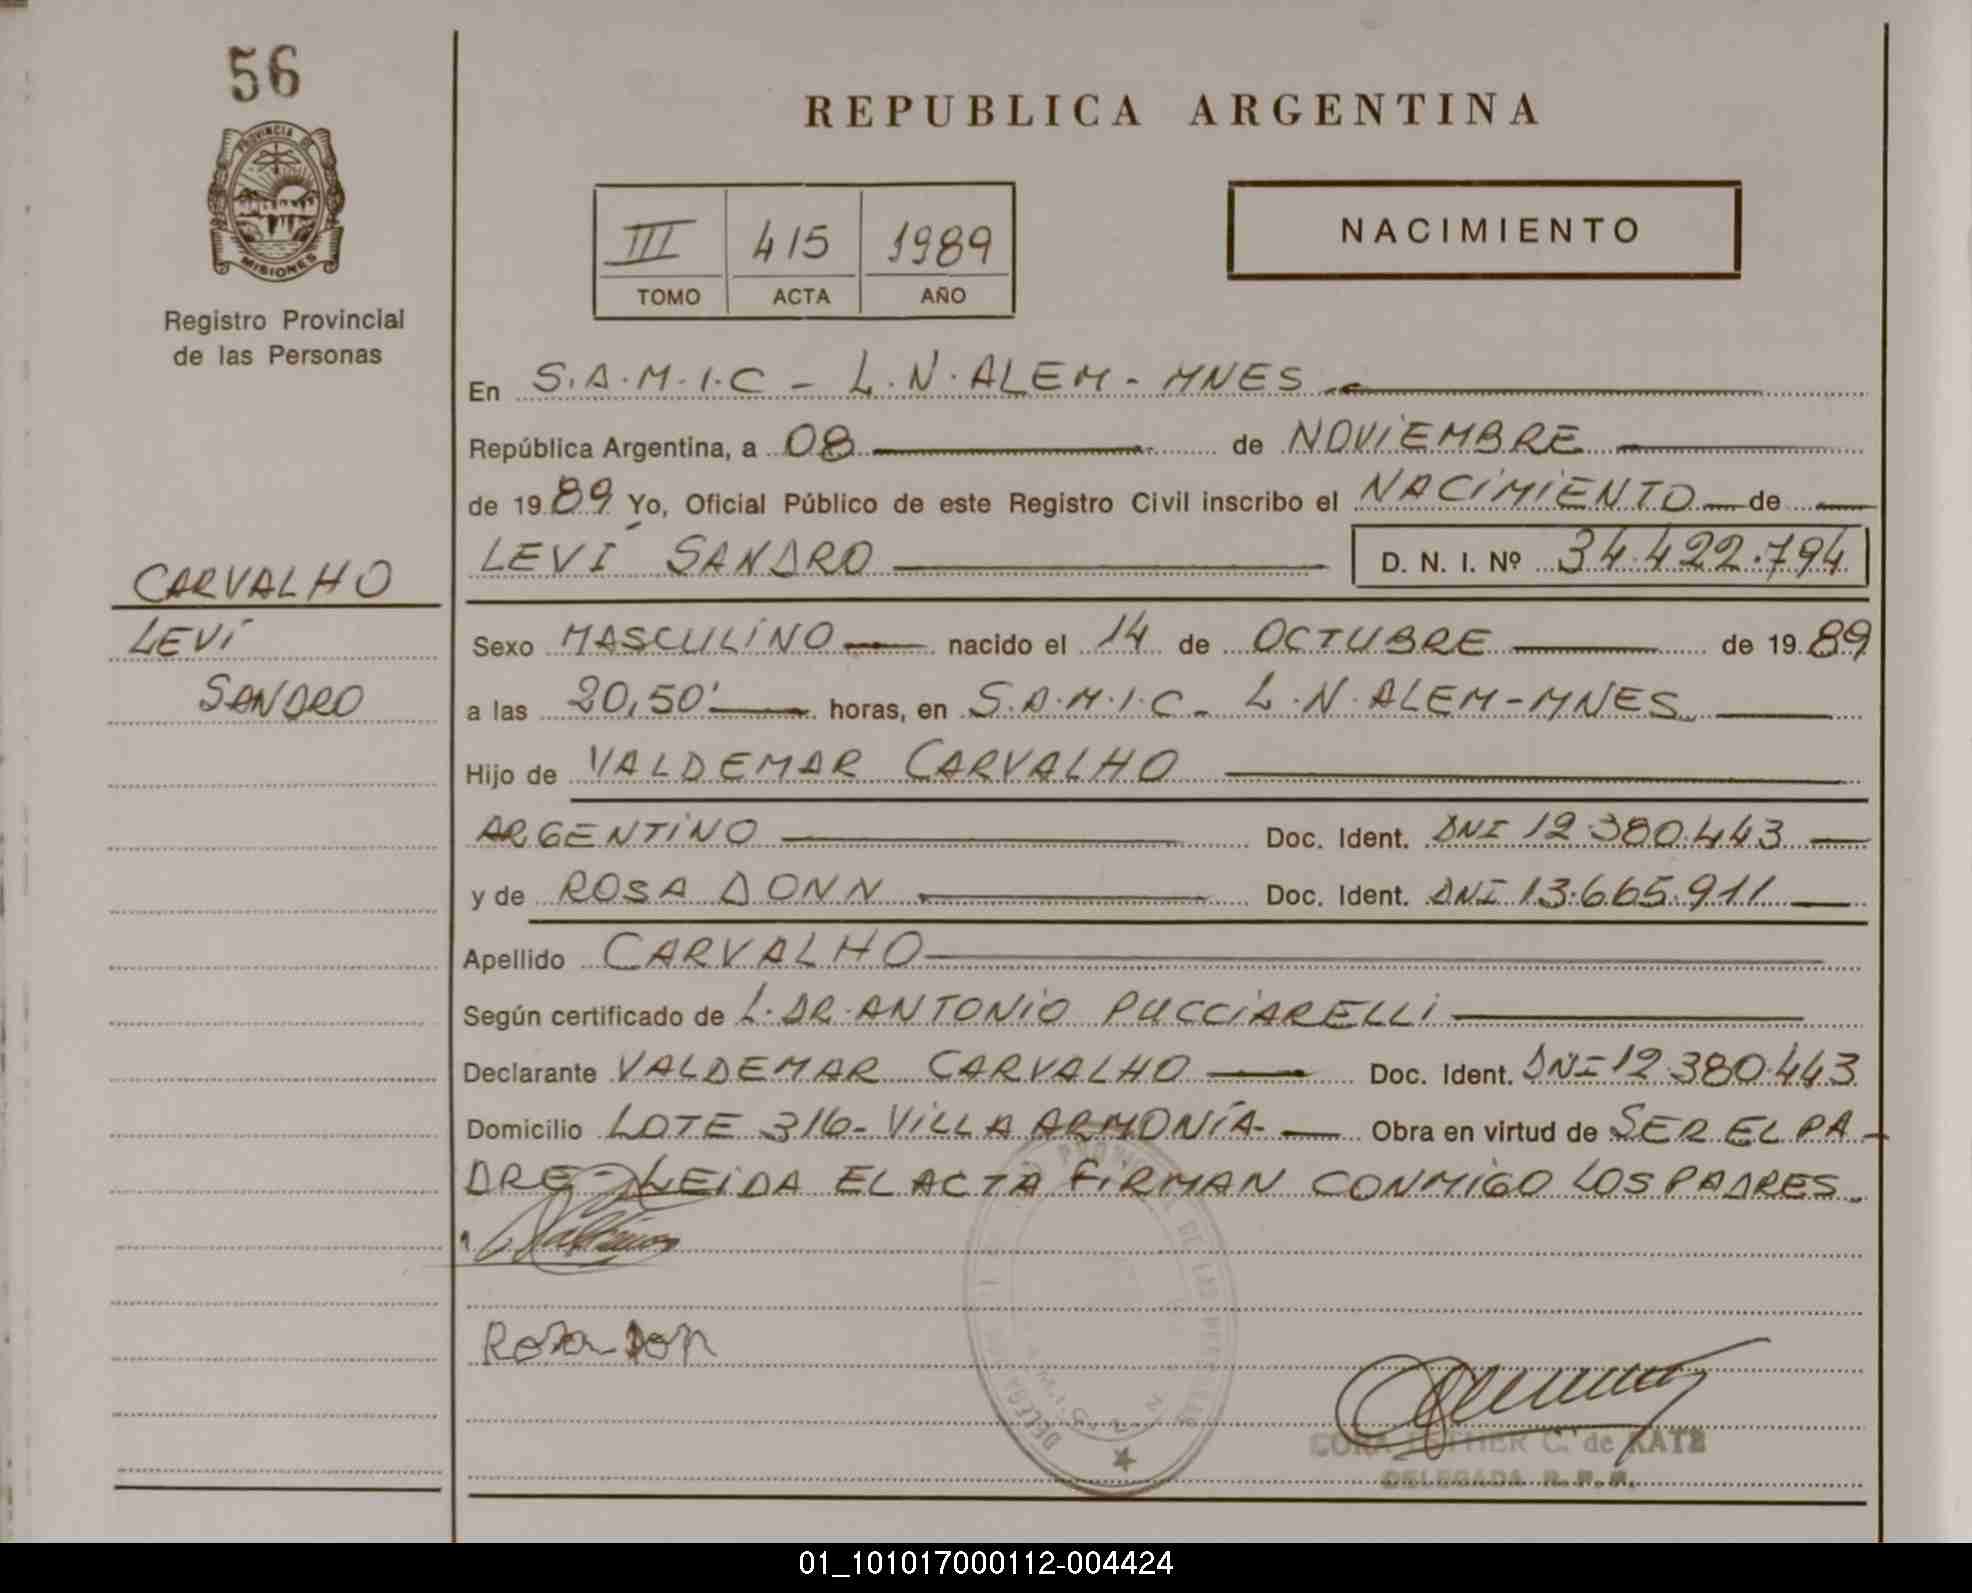 56
PROVINCIA DE
MISIONES
Registro Provincial
de las Personas
CARVALHO
LEVí
SANDRO
REPUBLICA ARGENTINA
III 415 1989
TOMO ACTA AÑO
NACIMIENTO
En S.A.M.I.C - L.N.ALEM - MNES
República Argentina, a 08 de NOViEMBRE
de 1989 Yo, Oficial Público de este Registro Civil inscribo el NACiMiENTO de
LEVÍ SANDRO D. N. I. Nº 34.422.794
Sexo MASCULiNO nacido el 14 de OCTUBRE de 1989
a las 20,50' horas, en S.A.M.I.C - L.N.ALEM - MNES
Hijo de VALDEMAR CARVALHO
ARGENTiNO Doc. Ident. DNI 12.380.443
y de ROSA DONN Doc. Ident. DNI 13.665.911
Apellido CARVALHO
Según certificado de L.DR.ANTONiO PUCCiARELLi
Declarante VALDEMAR CARVALHO Doc. Ident. DNI 12.380.443
Domicilio LOTE 316 - ViLLA ARMONÍA - Obra en virtud de SER EL PA-
DRE - LEiDA EL ACTA FiRMAN CONMiGO LOS PADRES
Rosa Don
CORA ESTHER C. de KATZ
DELEGADA R. P. P.
01_101017000112-004424